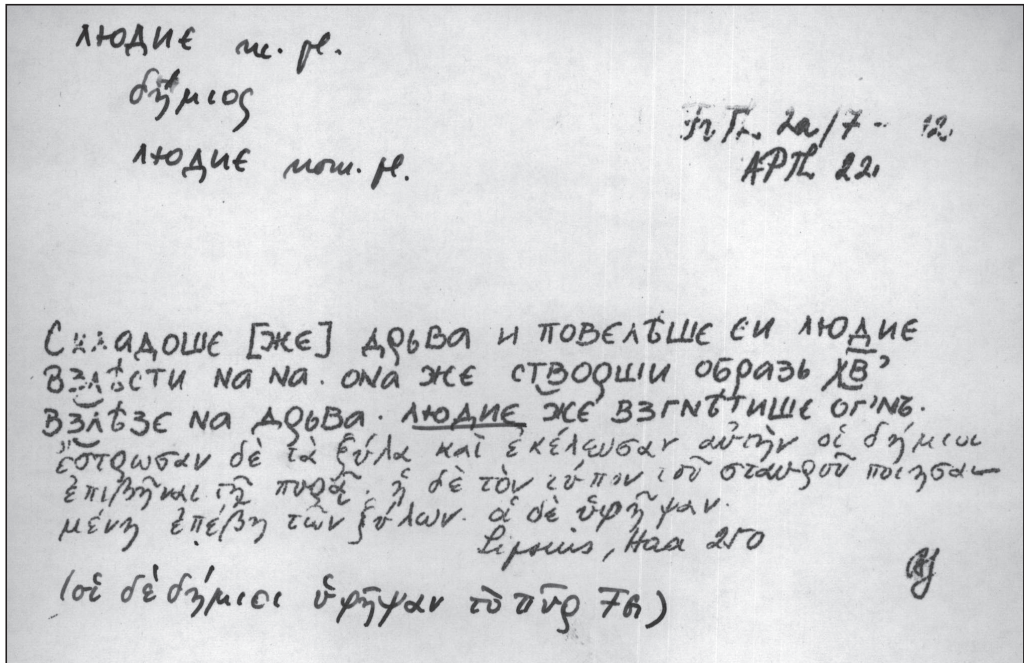 людиє m. pl.
δήμιος
людиє nom. pl.
2a/7 - 12
22.
Складошє [жє] дрьва и повєлѣшє єи людиє
взлѣсти на на. она жє створши образь х҃в
взлѣзє на дрьва. людиє жє взгнѣтишє ог'нь.
ἔστρωσαν δὲ τὰ ξύλα καὶ ἐκέλευσαν αὐτὴν οἱ δήμιοι
ἐπιβῆναι τῇ πυρᾷ. ἡ δὲ τὸν τύπον τοῦ σταυροῦ ποιησα-
μένη ἐπέβη τῶν ξύλων. οἱ δὲ ὑφῆψαν.
Lipsius, Haa 250
(οἱ δὲ δήμιοι ὑφῆψαν τὸ πῦρ